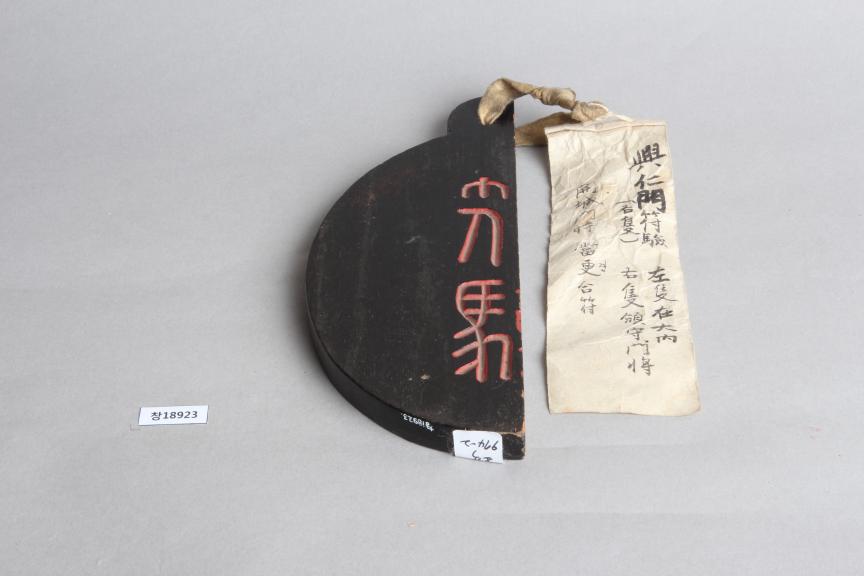 興仁門符驗
(右隻)
左隻在大內
右隻領守門將
開城門時當更合符
창18923
창18923.